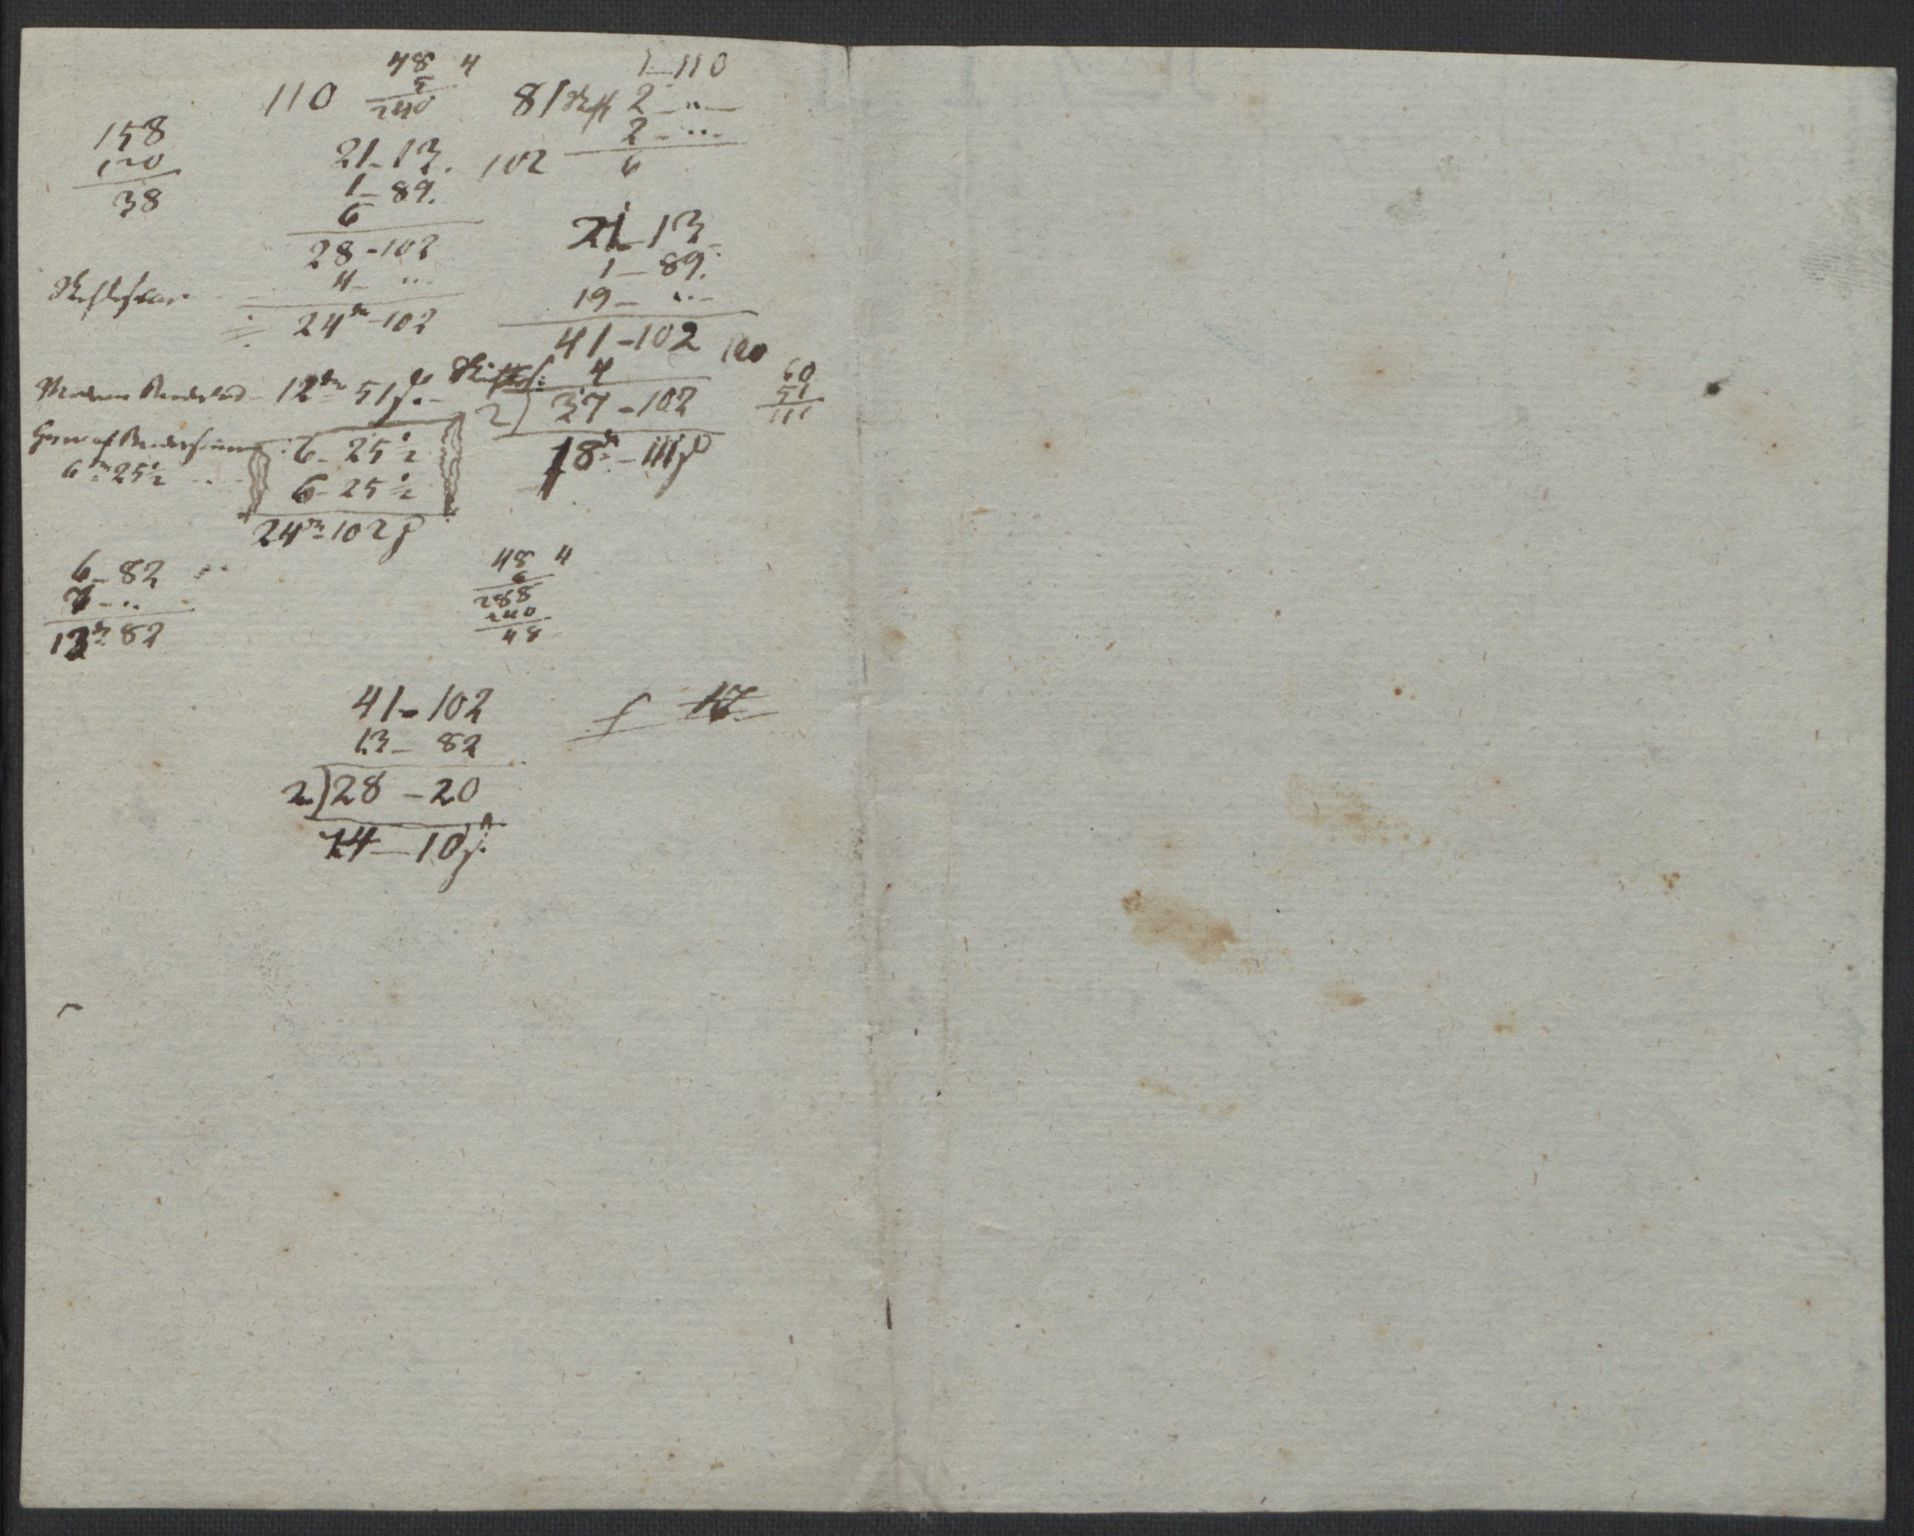 48 4
5
240
110
158
120
38
21-13.
1-89.
6
28-102
4- ...
24 -102
1-110
81 2-..-
2-...
6
102
21-13
1-89.
19-...
41-102
4
2) 37-102
18 - 111
120
60
51
111
12 51
6-25½
6 25½
6-25½
24 102
6-82
7-..
13 82
48 4
6
288
240
48
41-102
13-82
2) 28-20
14-10